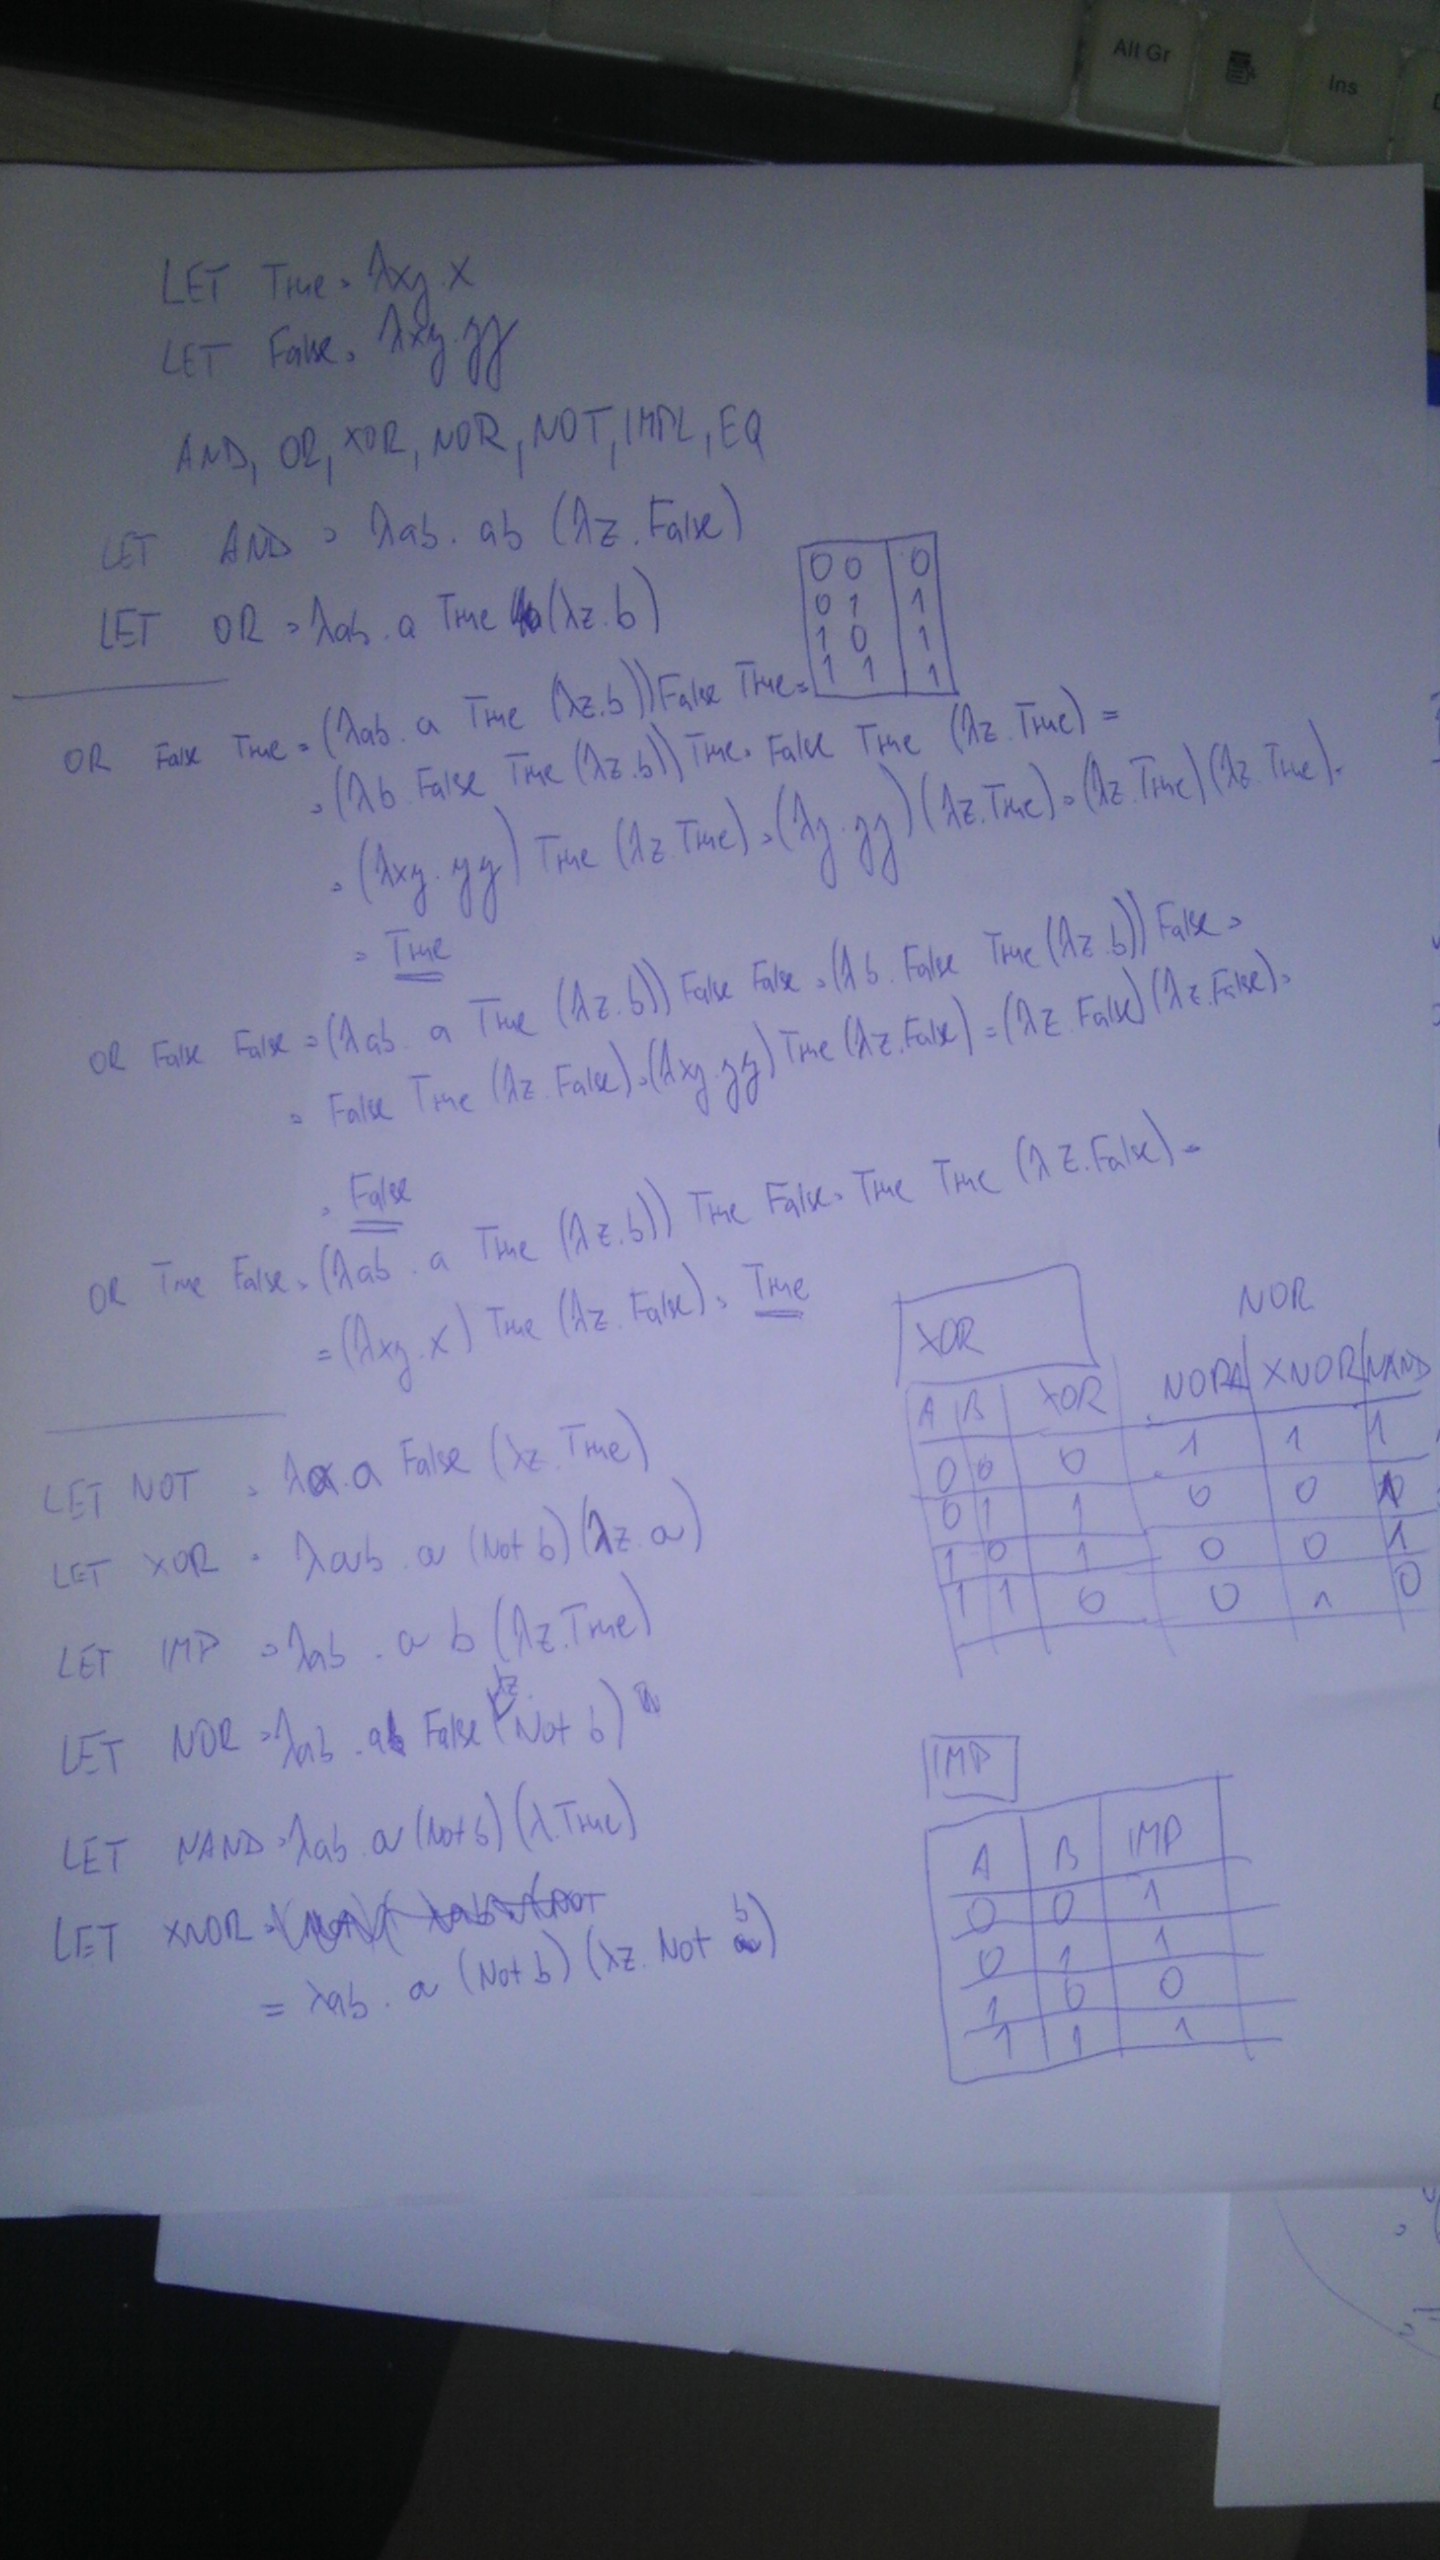 Alt Gr
Ins
LET True = λxy.x
LET False = λxy.yy
AND, OR, XOR, NOR, NOT, IMPL, EQ
LET AND = λab. ab (λz.False)
LET OR = λab.a True (λz.b)
0 0 0
0 1 1
1 0 1
1 1 1
OR False True = (λab. a True (λz.b)) False True =
= (λb.False True (λz.b)) True = False True (λz.True) =
= (λxy.yy) True (λz.True) = (λy.yy) (λz.True) = (λz.True) (λz.True) =
= True
OR False False = (λab. a True (λz.b)) False False = (λb. False True (λz.b)) False =
= False True (λz.False) = (λxy.yy) True (λz.False) = (λz.False) (λz.False) =
= False
OR True False = (λab. a True (λz.b)) True False = True True (λz.False) =
= (λxy.x) True (λz.False) = True
LET NOT = λa.a False (λz.True)
LET XOR = λab.a (Not b) (λz.a)
LET IMP = λab.a b (λz.True)
LET NOR = λab.a False (λz. Not b)
LET NAND = λab.a (Not b) (λ.True)
LET XNOR =
= λab. a (Not b) (λz. Not b)
XOR
NOR
A B XOR XNOR NAND
0 0 0 1 1 1
0 1 1 0 0
1 0 1 0 0 1
1 1 0 0 1 0
IMP
A B IMP
0 0 1
0 1 1
1 0 0
1 1 1